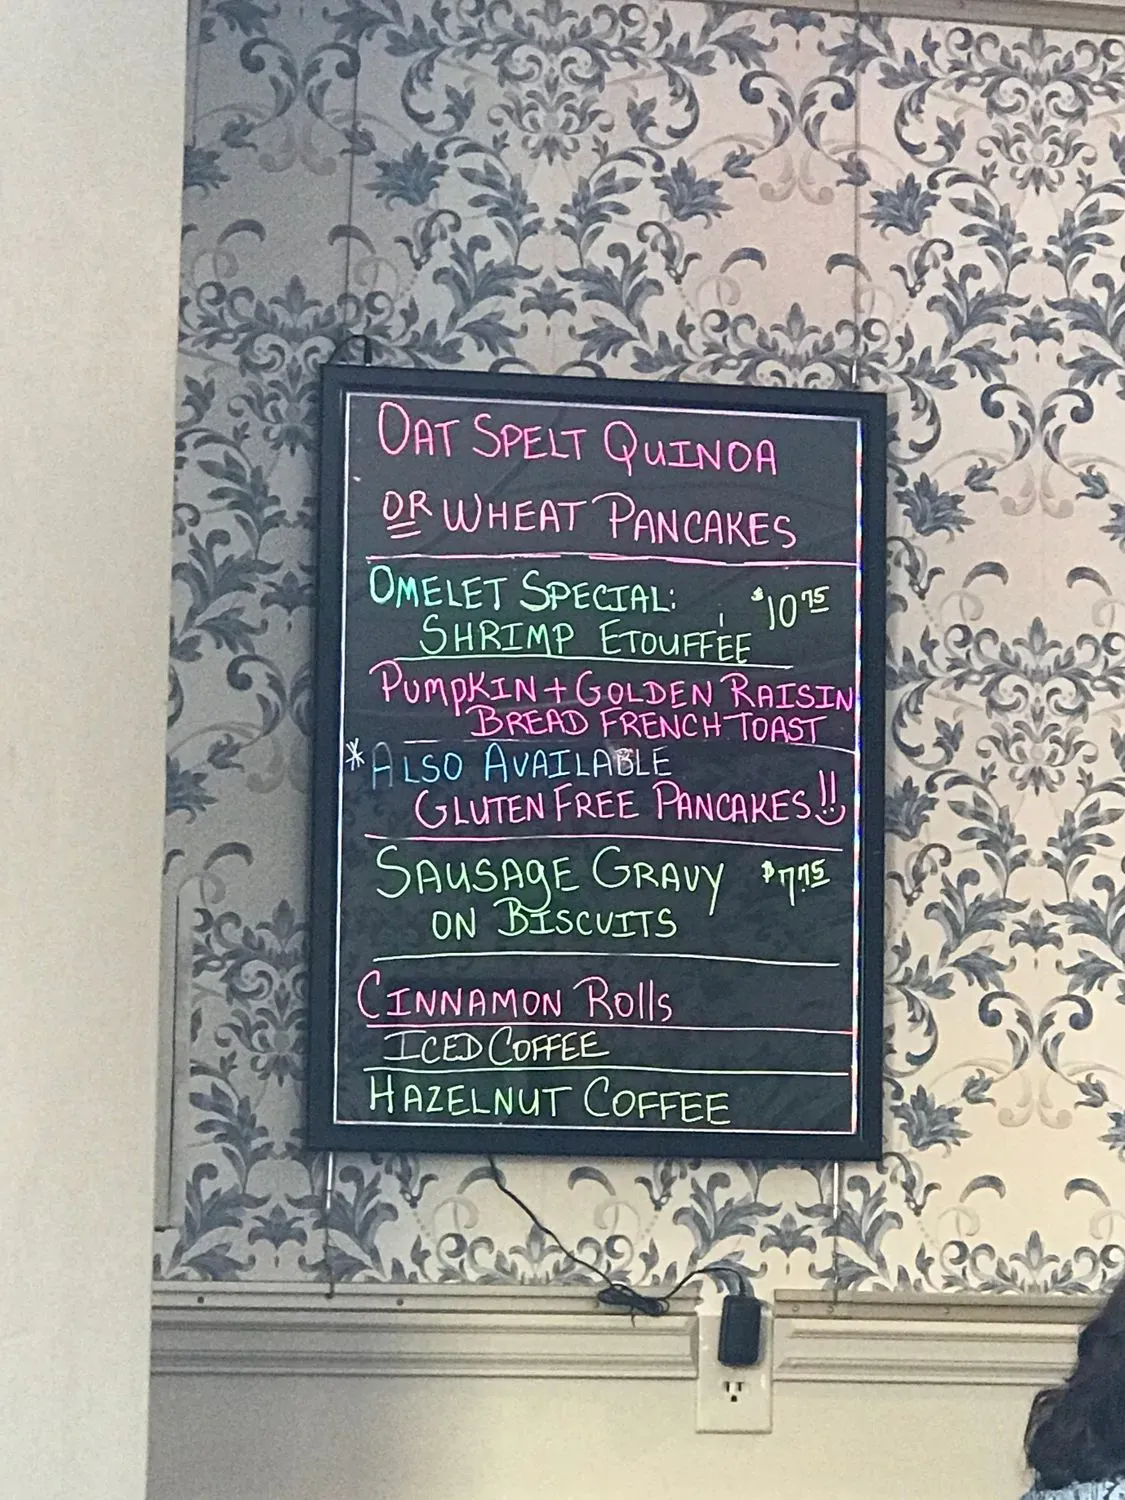 OAT SPELT QUINOA
OR WHEAT PANCAKES
OMELET SPECIAL: $10.75
SHRIMP ETOUFFÉE
PUMPKIN + GOLDEN RAISIN
BREAD FRENCH TOAST
* ALSO AVAILABLE
GLUTEN FREE PANCAKES!!
SAUSAGE GRAVY $7.75
ON BISCUITS
CINNAMON Rolls
ICED COFFEE
HAZELNUT COFFEE